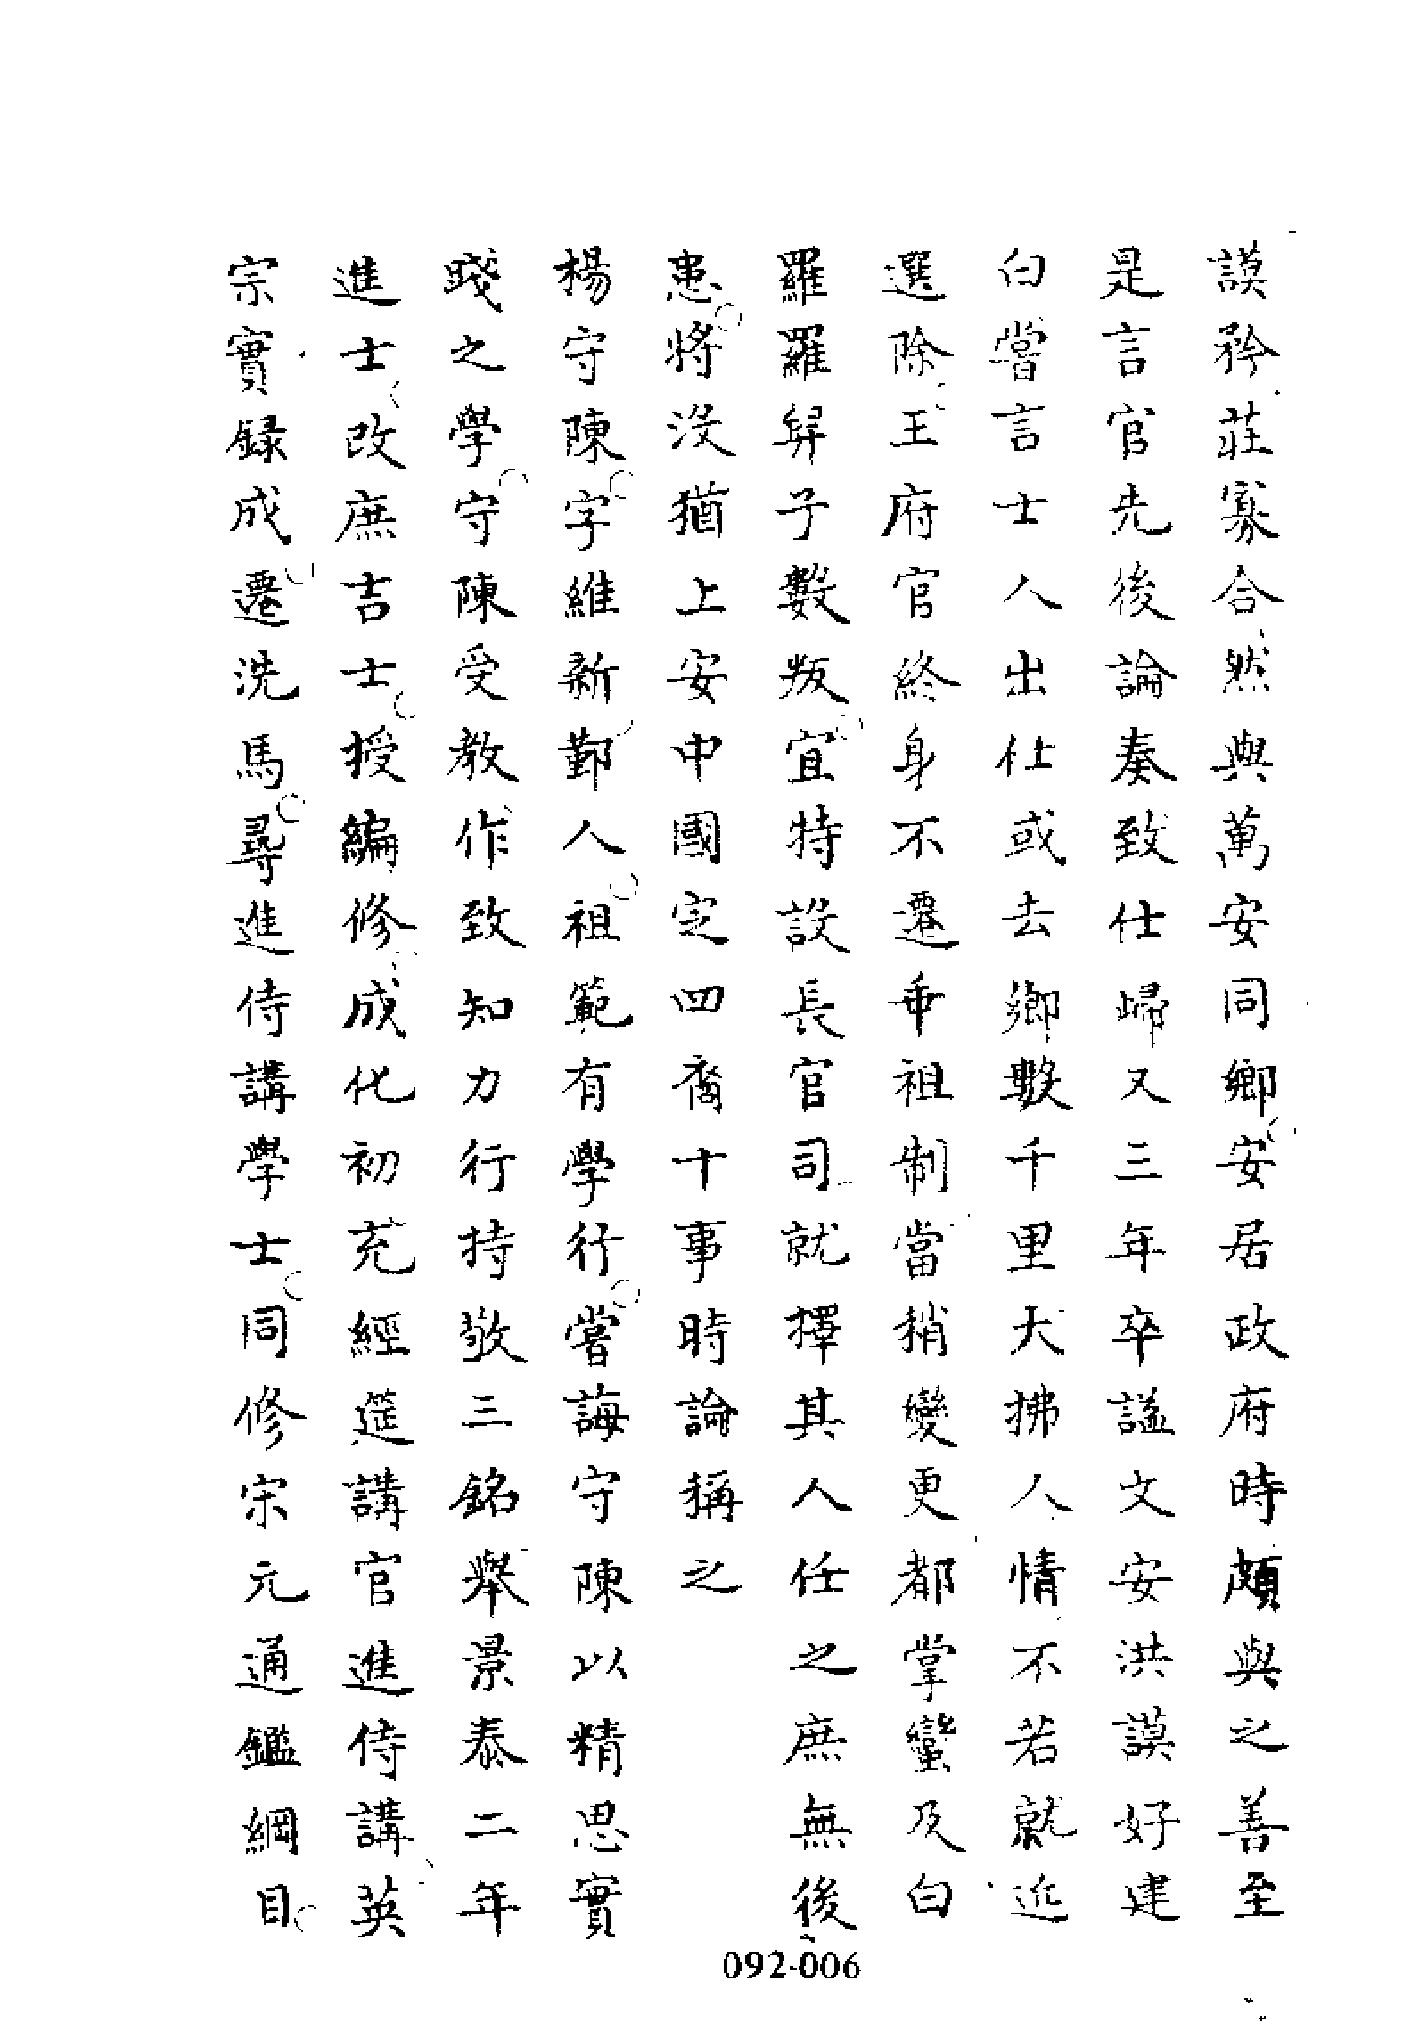 謨矜莊寡合然與萬安同鄉安居政府時頗與之善至
是言官先後論奏致仕歸又三年卒謚文安洪謨好建
白嘗言士人出仕或去鄉數千里大拂人情不若就近
選除王府官終身不遷乖祖制當稍變更都掌蠻及白
羅羅羿子數叛宜特設長官司就擇其人任之庶無後
患將沒猶上安中國定四裔十事時論稱之
楊守陳字維新鄞人祖範有學行嘗誨守陳以精思實
踐之學守陳受教作致知力行持敬三銘舉景泰二年
進士改庶吉士授編修成化初充經筵講官進侍講英
宗實録成遷洗馬尋進侍講學士同修宋元通鑑綱目
092-006